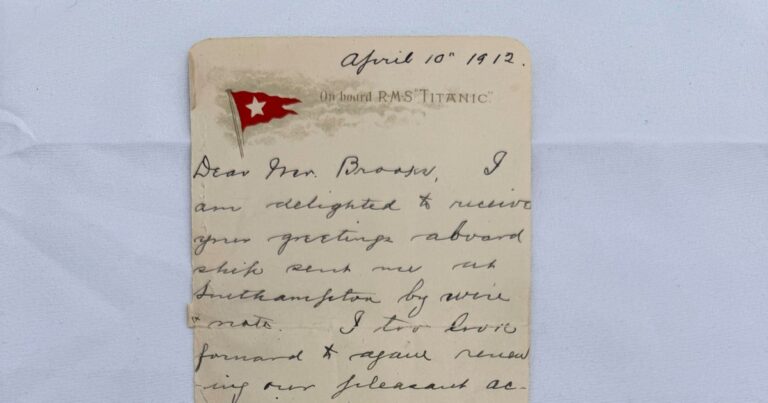 April 10" 1912.
On board R.M.S "TITANIC".
Dear Mr. Brooks, I
am delighted to receive
your greetings aboard
ship sent me at
Southampton by wire
& note. I too look
forward to again renew
-ing our pleasant ac-